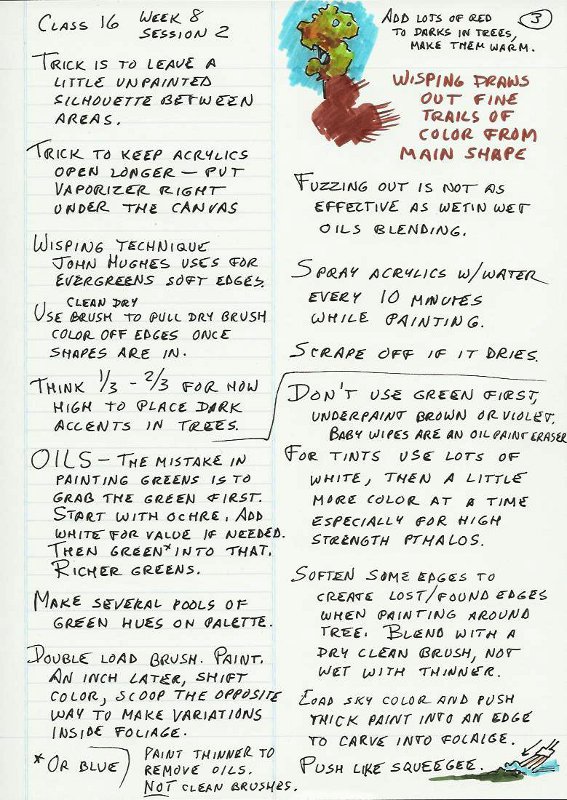 CLASS 16 WEEK 8
SESSION 2
TRICK IS TO LEAVE A
LITTLE UNPAINTED
SILHOUETTE BETWEEN
AREAS.
TRICK TO KEEP ACRYLICS
OPEN LONGER – PUT
VAPORIZER RIGHT
UNDER THE CANVAS
WISPING TECHNIQUE
JOHN HUGHES USES FOR
EVERGREENS SOFT EDGES.
CLEAN DRY
USE BRUSH TO PULL DRY BRUSH
COLOR OFF EDGES ONCE
SHAPES ARE IN.
THINK 1/3 - 2/3 FOR HOW
HIGH TO PLACE DARK
ACCENTS IN TREES.
OILS – THE MISTAKE IN
PAINTING GREENS IS TO
GRAB THE GREEN FIRST.
START WITH OCHRE. ADD
WHITE FOR VALUE IF NEEDED.
THEN GREEN* INTO THAT.
RICHER GREENS.
MAKE SEVERAL POOLS OF
GREEN HUES ON PALETTE.
DOUBLE LOAD BRUSH. PAINT.
AN INCH LATER, SHIFT
COLOR, SCOOP THE OPPOSITE
WAY TO MAKE VARIATIONS
INSIDE FOLIAGE.
* OR BLUE
PAINT THINNER TO
REMOVE OILS.
NOT CLEAN BRUSHES.
3
ADD LOTS OF RED
TO DARKS IN TREES,
MAKE THEM WARM.
WISPING DRAWS
OUT FINE
TRAILS OF
COLOR FROM
MAIN SHAPE
FUZZING OUT IS NOT AS
EFFECTIVE AS WET IN WET
OILS BLENDING.
SPRAY ACRYLICS W/WATER
EVERY 10 MINUTES
WHILE PAINTING.
SCRAPE OFF IF IT DRIES.
DON'T USE GREEN FIRST,
UNDERPAINT BROWN OR VIOLET.
BABY WIPES ARE AN OIL PAINT ERASER
FOR TINTS USE LOTS OF
WHITE, THEN A LITTLE
MORE COLOR AT A TIME
ESPECIALLY FOR HIGH
STRENGTH PTHALOS.
SOFTEN SOME EDGES TO
CREATE LOST/FOUND EDGES
WHEN PAINTING AROUND
TREE. BLEND WITH A
DRY CLEAN BRUSH, NOT
WET WITH THINNER.
LOAD SKY COLOR AND PUSH
THICK PAINT INTO AN EDGE
TO CARVE INTO FOLAIGE.
PUSH LIKE SQUEEGEE.